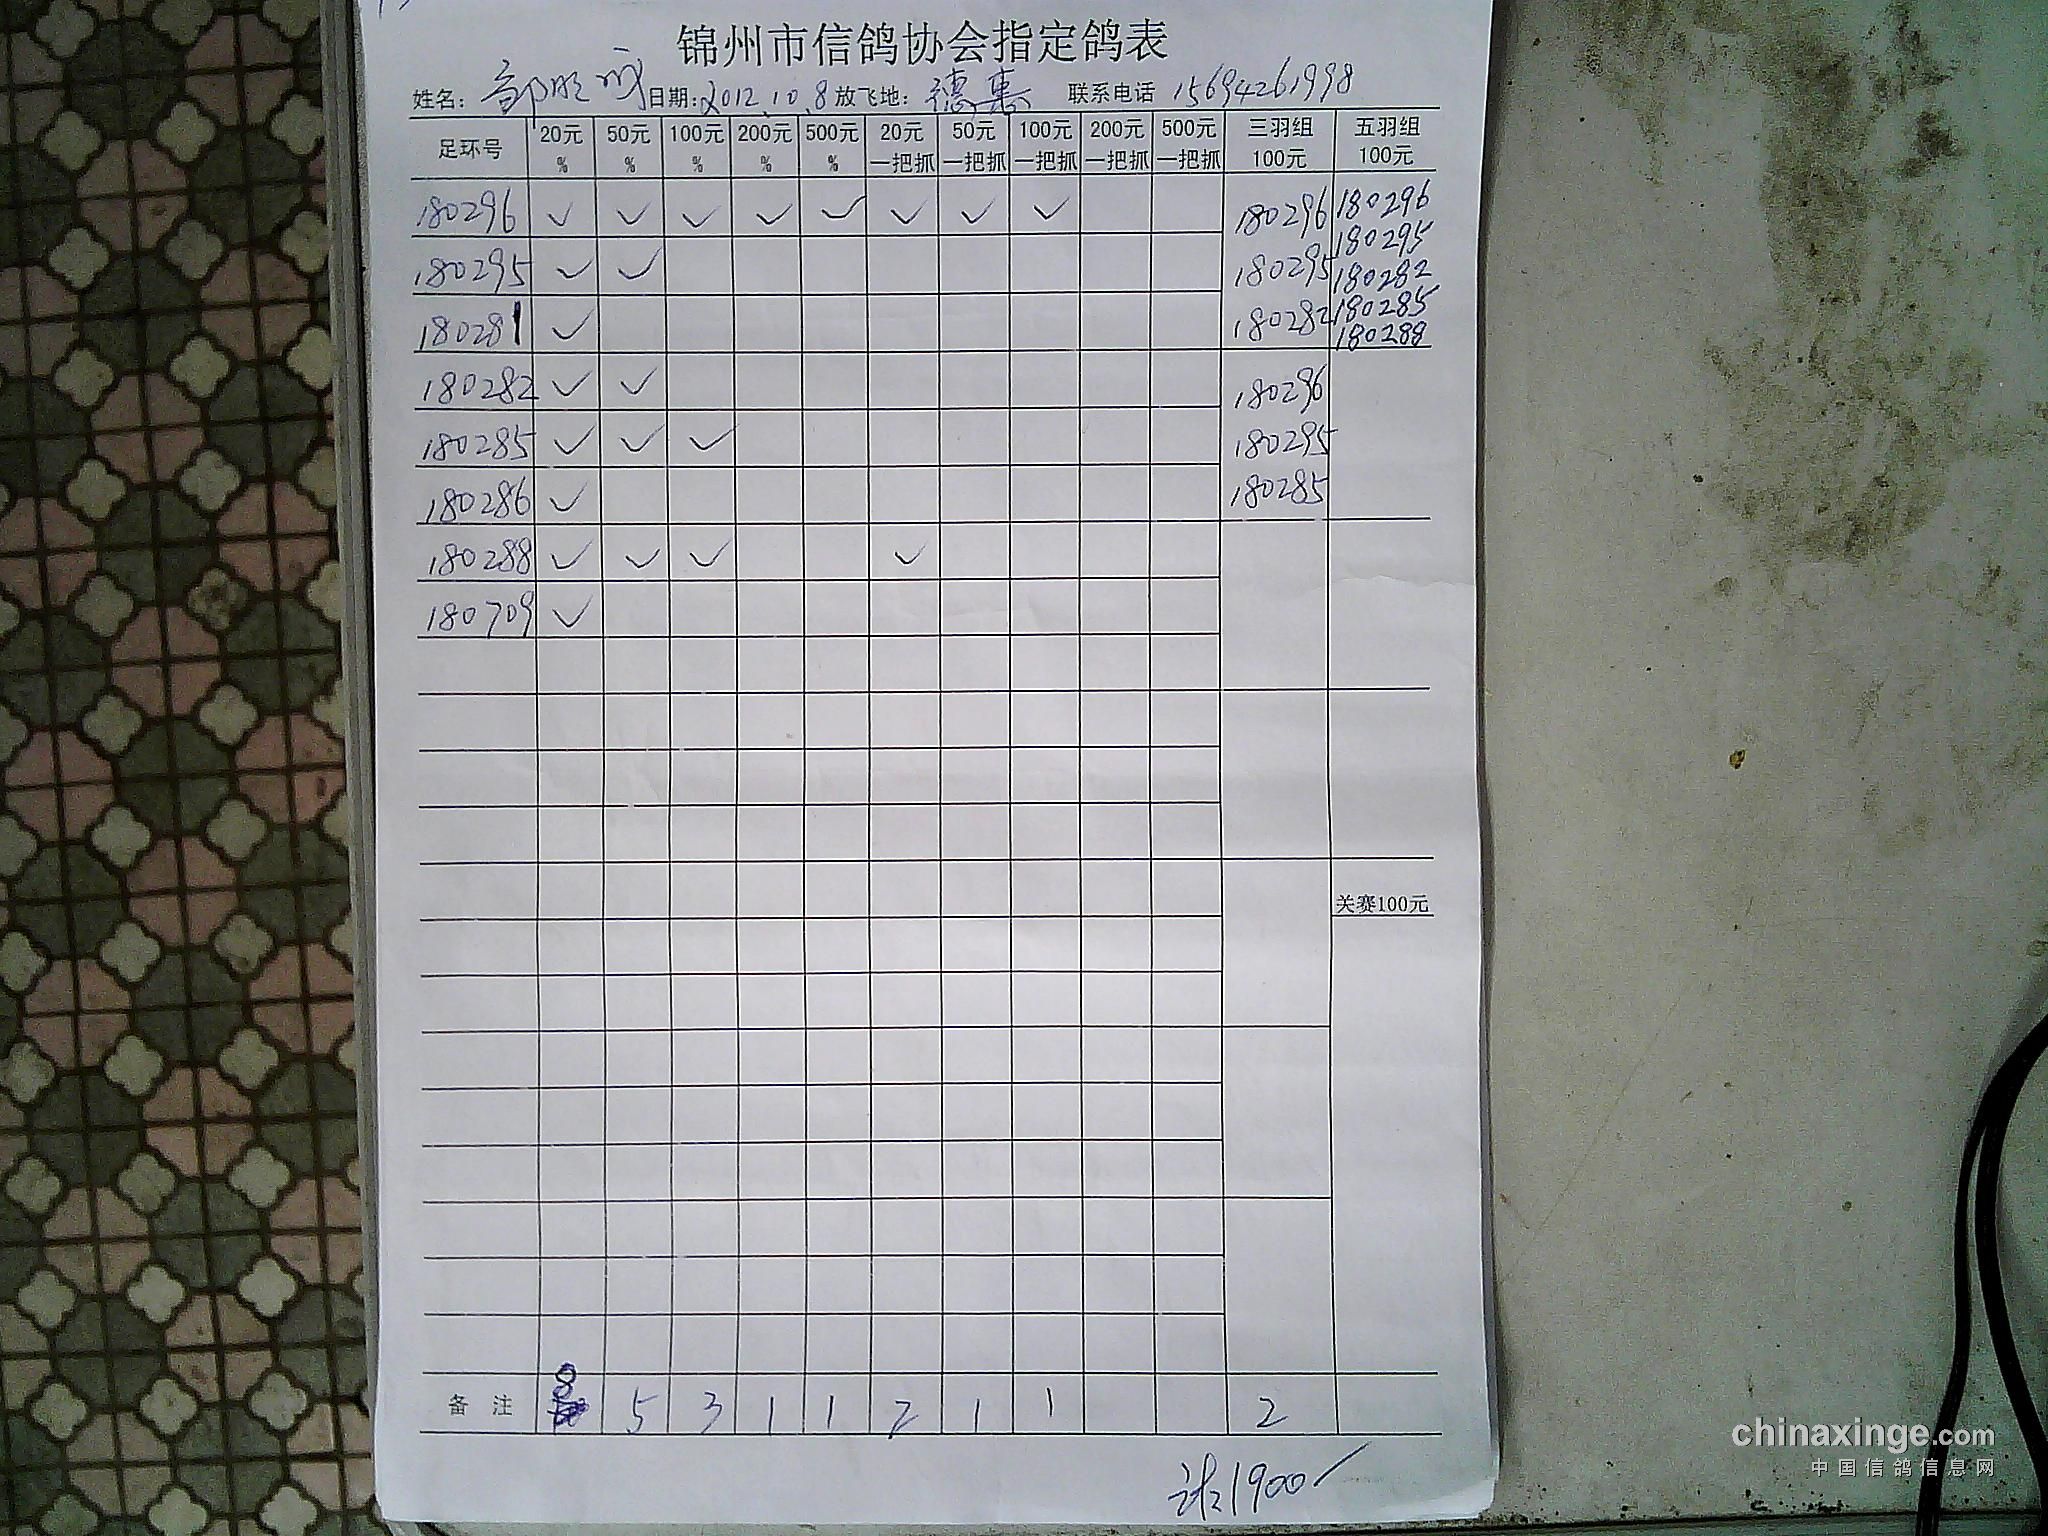 锦州市信鸽协会指定鸽表
姓名: 日期: 2012.10.8 放飞地: 德惠 联系电话 15694261998
足环号 20元% 50元% 100元% 200元% 500元% 20元一把抓 50元一把抓 100元一把抓 200元一把抓 500元一把抓 三羽组100元 五羽组100元
180296 ✓ ✓ ✓ ✓ ✓ ✓ ✓ ✓ 180296 180296
180295
180295 ✓ ✓ 180295 180282
180281 ✓ 180282 180285
180288
180282 ✓ ✓ 180296
180285 ✓ ✓ ✓ 180295
180286 ✓ 180285
180288 ✓ ✓ ✓ ✓
180709 ✓
关赛100元
备 注 8 5 3 1 1 2 1 1 2
计:1900
chinaxinge.com
中国信鸽信息网